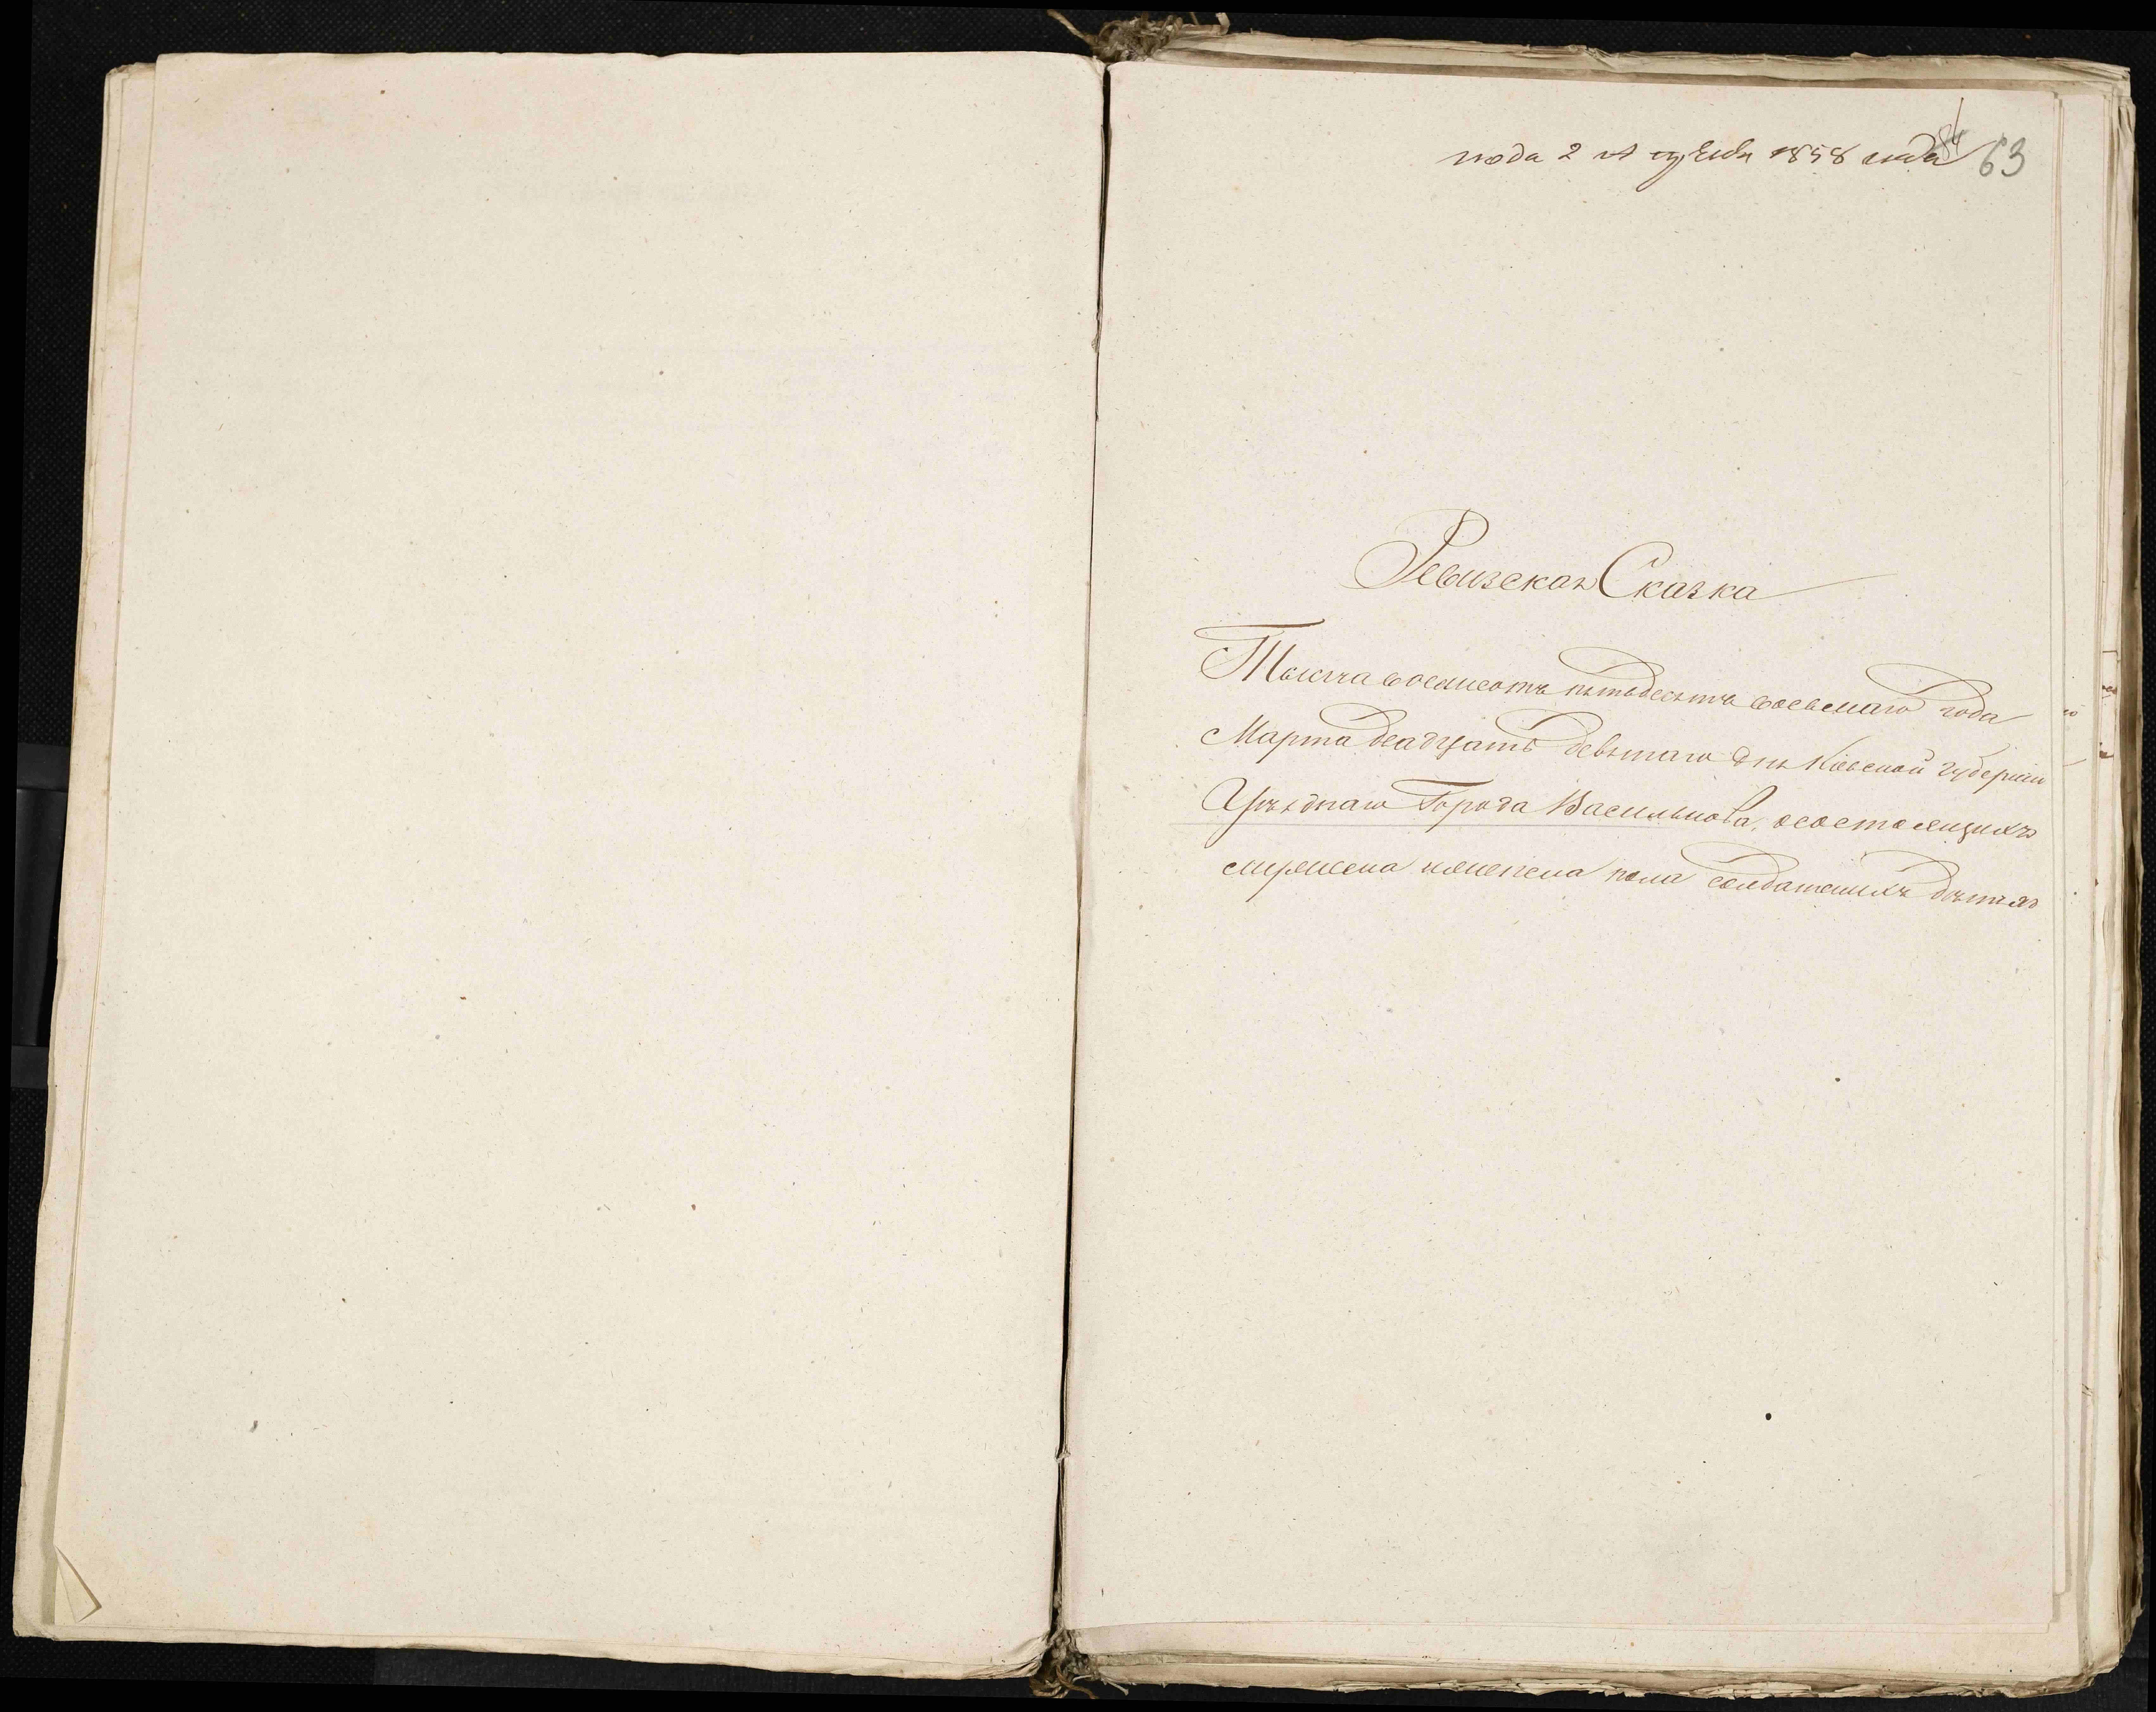 пода 2 Апрѣля 1858 года 63
Ревизская Сказка
Тысяча восемсотъ пятьдесятъ восьмаго года
Марта двадцать девятаго дня Кіевской Губерніи
Уѣзднаго Города Василькова, осостоящихъ
мужеска иженска пола солдатскихъ дѣтяхъ